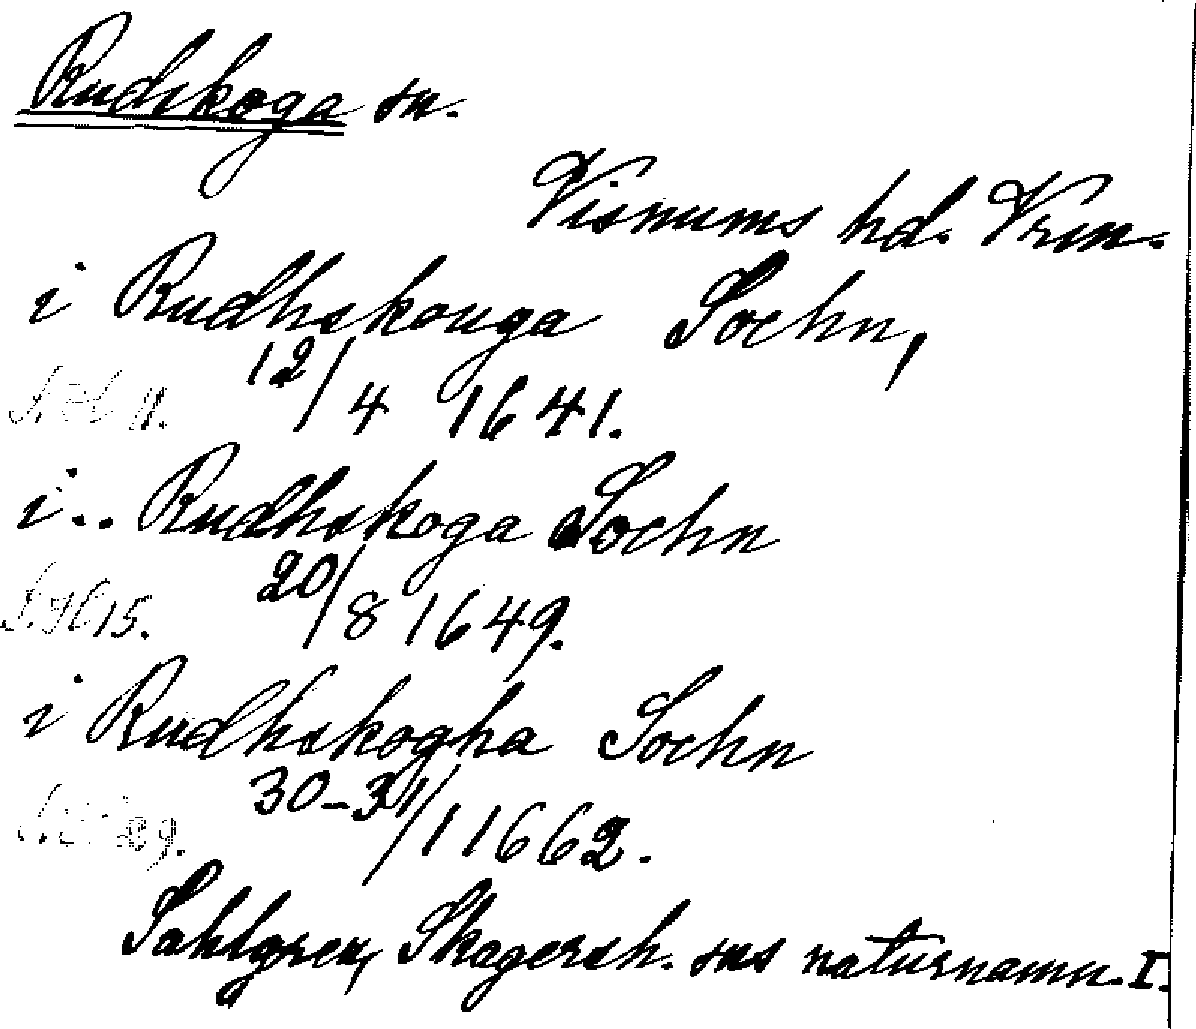 Rudskoga sn.
Visnums hd. Vrm.
i Rudhskouga Sochn,
12/4 1641.
i.. Rudhskoga Sochn
20/8 1649.
15.
i Rudhskogha Sochn
30-31/1 1662.
Sahlgren, Skagersh. sns naturnamn. I.